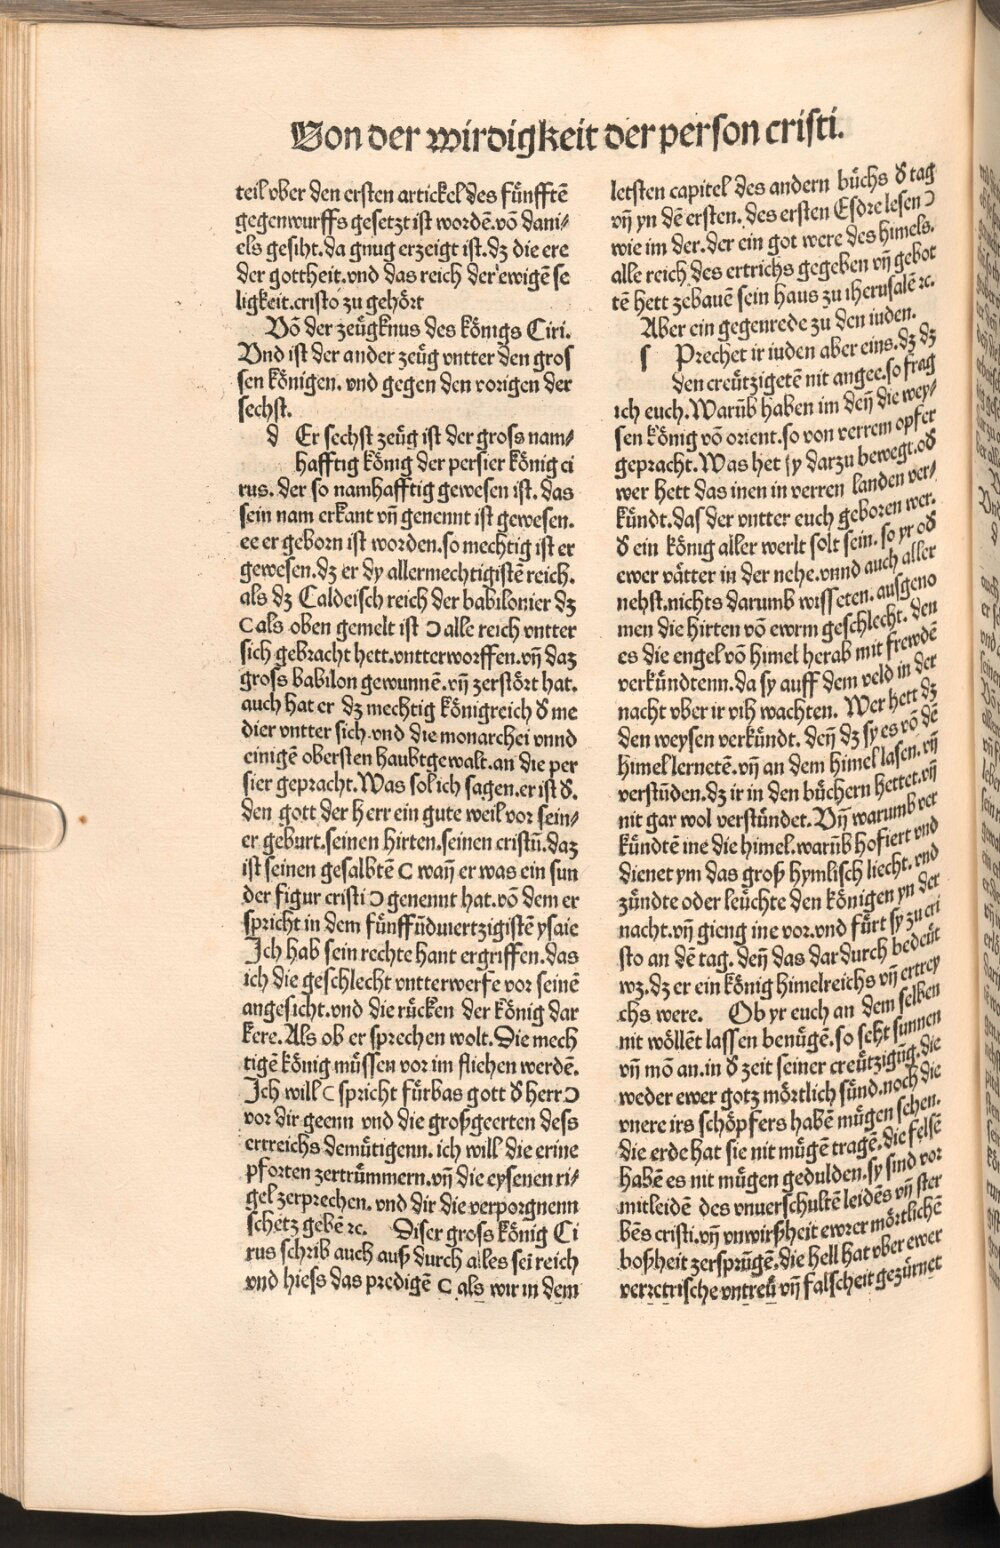 Von der wirdigkeit der person cristi.
teil vber den ersten artickel des fünfftē
gegenwurffs gesetzt ist wordē. vō dani⸗
els gesiht. da gnug erzeigt ist. dz die ere
der gottheit. vnd das reich der ewigē se
ligkeit. cristo zu gehört
Vō der zeügknus des königs Ciri.
Vnd ist der ander zeüg vntter den gros
sen königen. vnd gegen den vorigen der
sechst.
d Er sechst zeüg ist der gross nam⸗
hafftig könig der persier könig ci
rus. der so namhafftig gewesen ist. das
sein nam erkant vn̄ genennt ist gewesen.
ee er geborn ist worden. so mechtig ist er
gewesen. dz er dy allermechtigistē reich.
als dz Caldeisch reich der babilonier dz
C als oben gemelt ist Ɔ alle reich vntter
sich gebracht hett. vntterworffen. vn̄ daz
gross babilon gewunnē. vn̄ zerstört hat.
auch hat er dz mechtig königreich d̓ me
dier vntter sich. vnd die monarchei vnnd
einigē obersten haubtgewalt. an die per
sier gepracht. Was sol ich sagen. er ist d̓.
den gott der herr ein gute weil vor sein⸗
er geburt. seinen hirten. seinen cristū. daz
ist seinen gesalbtē C wan̄ er was ein sun
der figur cristi Ɔ genennt hat. vō dem er
spricht in dem fünffūdviertzigistē ysaie
Ich hab sein rechte hant ergriffen. das
ich die geschlecht vntterwerfe vor seinē
angesicht. vnd die rücken der könig dar
kere. Als ob er sprechen wolt. Die mech
tigē könig müssen vor im flichen werdē.
Ich will C spricht fürbas gott d̓ herr Ɔ
vor dir geenn vnd die großgeerten dess
ertreichs demütigenn. ich will die erine
pforten zertrümmern. vn̄ die eysenen ri⸗
gel zerprechen. vnd dir die verporgnenn
schetz gebē ⁊c. Diser gross könig Ci
rus schrib auch auß durch alles sei reich
vnd hiess das predigē C als wir in dem
letsten capitel des andern büchs d̓ tag
vn̄ yn dē ersten. des ersten Esdre lesen Ɔ
wie im der. der ein got were des himels.
alle reich des ertrichs gegeben vn̄ gebot
tē hett zebauē sein haus zu iherusalē ⁊c.
Aber ein gegenrede zu den iuden.
s Prechet ir iuden aber eins. dz dz
den creützigetē nit angee. so frag
ich euch. Warūb haben im den̄ die wey⸗
sen könig vō orient. so von verrem opfer
gepracht. Was het sy darzu bewegt. od̓
wer hett das inen in verren landen ver⸗
kündt. das der vntter euch geboren wer.
d̓ ein könig aller werlt solt sein. so yr od̓
ewer vätter in der nehe. vnnd auch aller
nehst. nichts darumb wisseten. ausgeno
men die hirten vō ewrm geschlecht. den
es die engel vō himel herab mit frewdē
verkündtenn. da sy auff dem veld in der
nacht vber ir vih wachten. Wer hett dz
den weysen verkündt. den̄ dz sy es vō dē
himel lernetē. vn̄ an dem himel lasen. vn̄
verstūden. dz ir in den büchern hettet. vn̄
nit gar wol verstündet. Vn̄ warumb ver
kündtē ine die himel. warūb hofiert vnd
dienet ym das groß hymlisch liecht. vnd
zündte oder leüchte den königen yn der
nacht. vn̄ gieng ine vor. vnd fürt sy zu cri
sto an dē tag. den̄ das dardurch bedeüt
wz. dz er ein könig himelreichs vn̄ ertrey
chs were. Ob yr euch an dem selben
nit wöllēt lassen benügē. so seht sunnen
vn̄ mō an. in d̓ zeit seiner creützigūg. die
weder ewer gotz mörtlich sünd. noch die
vnere irs schöpfers habē mügen sehen.
die erde hat sie nit mügē tragē. die felsē
habē es nit mügen gedulden. sy sind vor
mitleidē des vnuerschultē leidēs vn̄ ster
bēs cristi. vn̄ vnwirßheit ewrer mörtlichē
boßheit zersprūgē. die hell hat vber ewer
verretrische vntreü vn̄ falscheit gezürnet